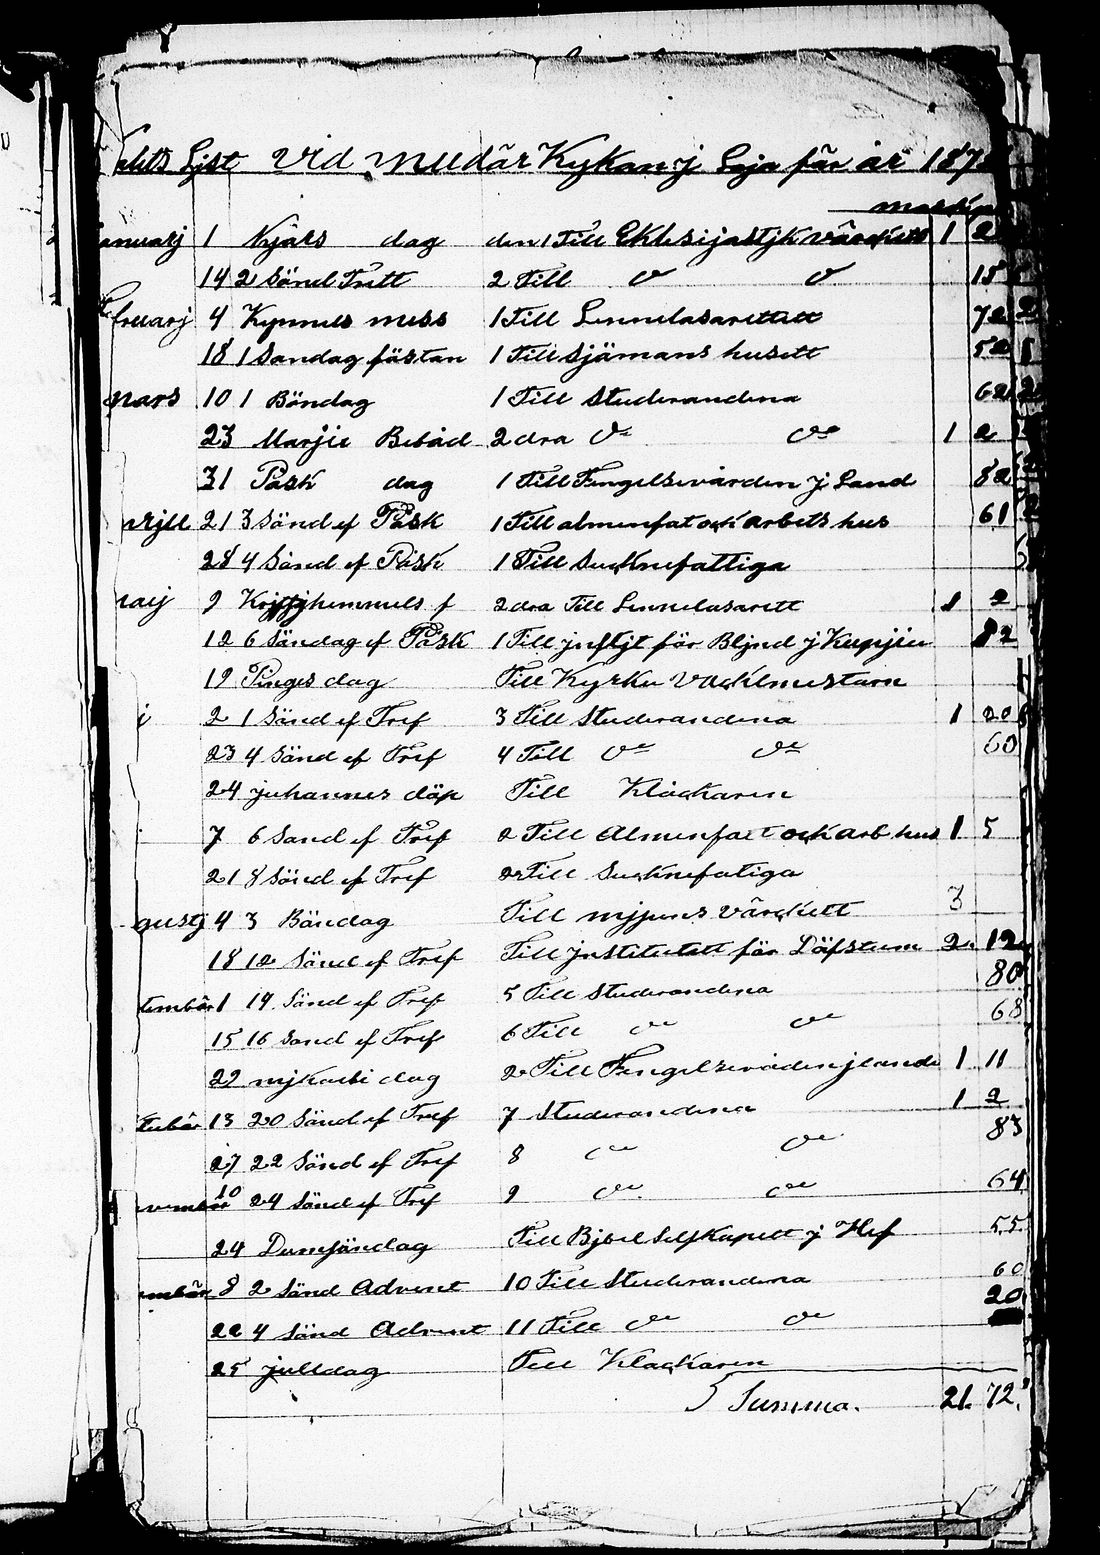 Ljst Vid mudär Kykan j Loja får år 187
mark
anuarj 1 Nyårs dag den 1 Till Eklesijastjk värckett 1 2
14 2 Sönd Trett 2 Till do do 15
bruarj 4 Kynnels mess 1 Till Lennelasarettett 72
18 1 Sandag fästan 1 Till Sjämans husett 52
mars 10 1 Böndag 1 Till Studerandena 62
23 Marjie Bebåd 2dra do do 1 2
31 Påsk dag 1 Till Fengelsevården j Land 82
prjll 21 3 Sönd ef Påsk 1 Till almenfat ock arbets hus 61
28 4 Sönd ef Påsk 1 Till Sucknefattiga
maij 9 hemmels f 2dra Till Lennelasarett 1 2
12 6 Söndag ef Påsk 1 Till jnstjt för Bljnd j Kupjie 82
19 Pinges dag Till Kyrku Vacktmestarn
j 2 1 Sönd ef Tref 3 Till Studerandena 1 20
23 4 Sönd ef Tref 4 Till do do 60
24 juhannes döp Till Klåckaren
7 6 Sand ef Tref 2 Till Almenfaet ock arb hus 1 5
21 8 Sönd ef Tref 2 Till Sucknefatiga
gustj 4 3 Böndag Till mjjuns Värckett 3
18 12 Sönd ef Tref Till jnstitutett får Döfstum 2 12
tembär 1 14 Sönd ef Tref 5 Till Studerandena 80
15 16 Sand ef Tref 6 Till do do 68
29 mjkaeli dag 2 Till Fengelsevåden j lande 1 11
tubär 13 20 Sönd ef Tref 7 Studerandena 1 2
27 22 Sönd ef Tref 8 do do 83
vembär 10 24 Sönd ef Tref 9 do do 64
24 Dumsöndag Till Bjbel Selskapett j Hef 55
embär 8 2 Sönd Advent 10 Till Studerandena 60
22 4 Sönd Advent 11 Till do do 20
25 julldag Till Klackaren
Summa. 21. 72.